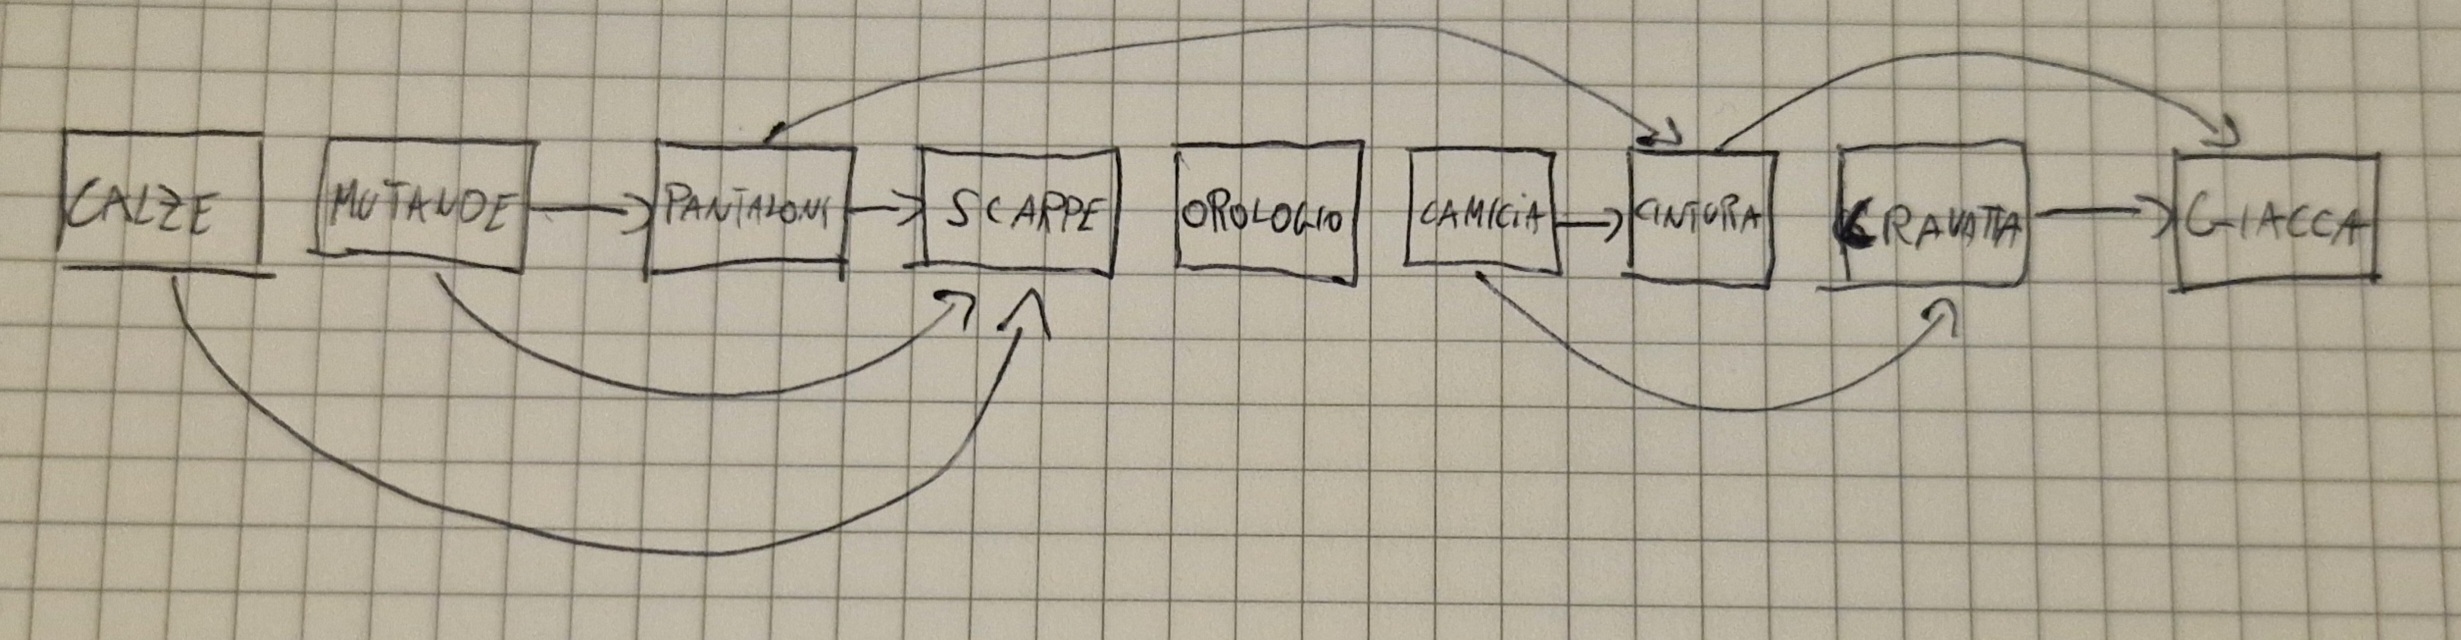 CALZE MUTANDE PANTALONI SCARPE OROLOGIO CAMICIA CINTURA CRAVATTA GIACCA